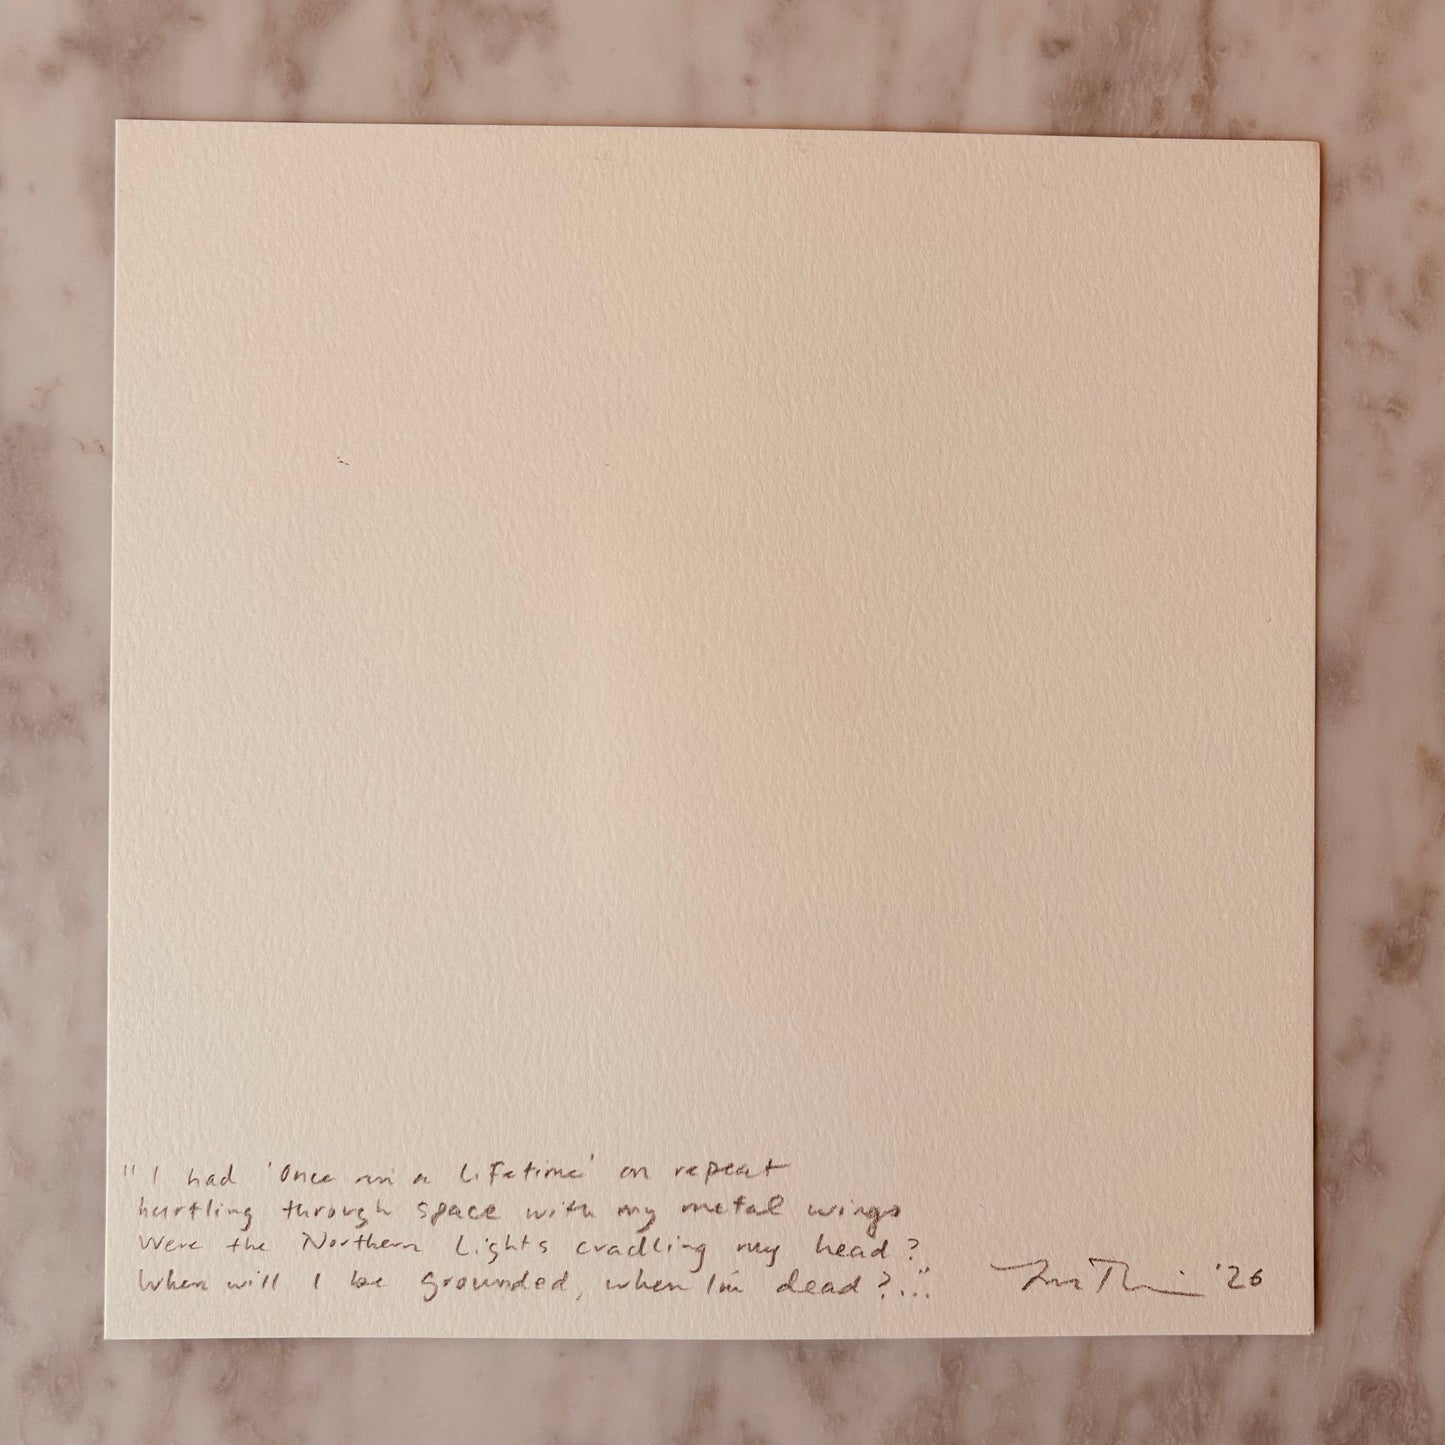 "I had 'Once in a Lifetime' on repeat
hurtling through space with my metal wings
Were the Northern Lights cradling my head?
When will I be grounded, when I'm dead?..."
'26